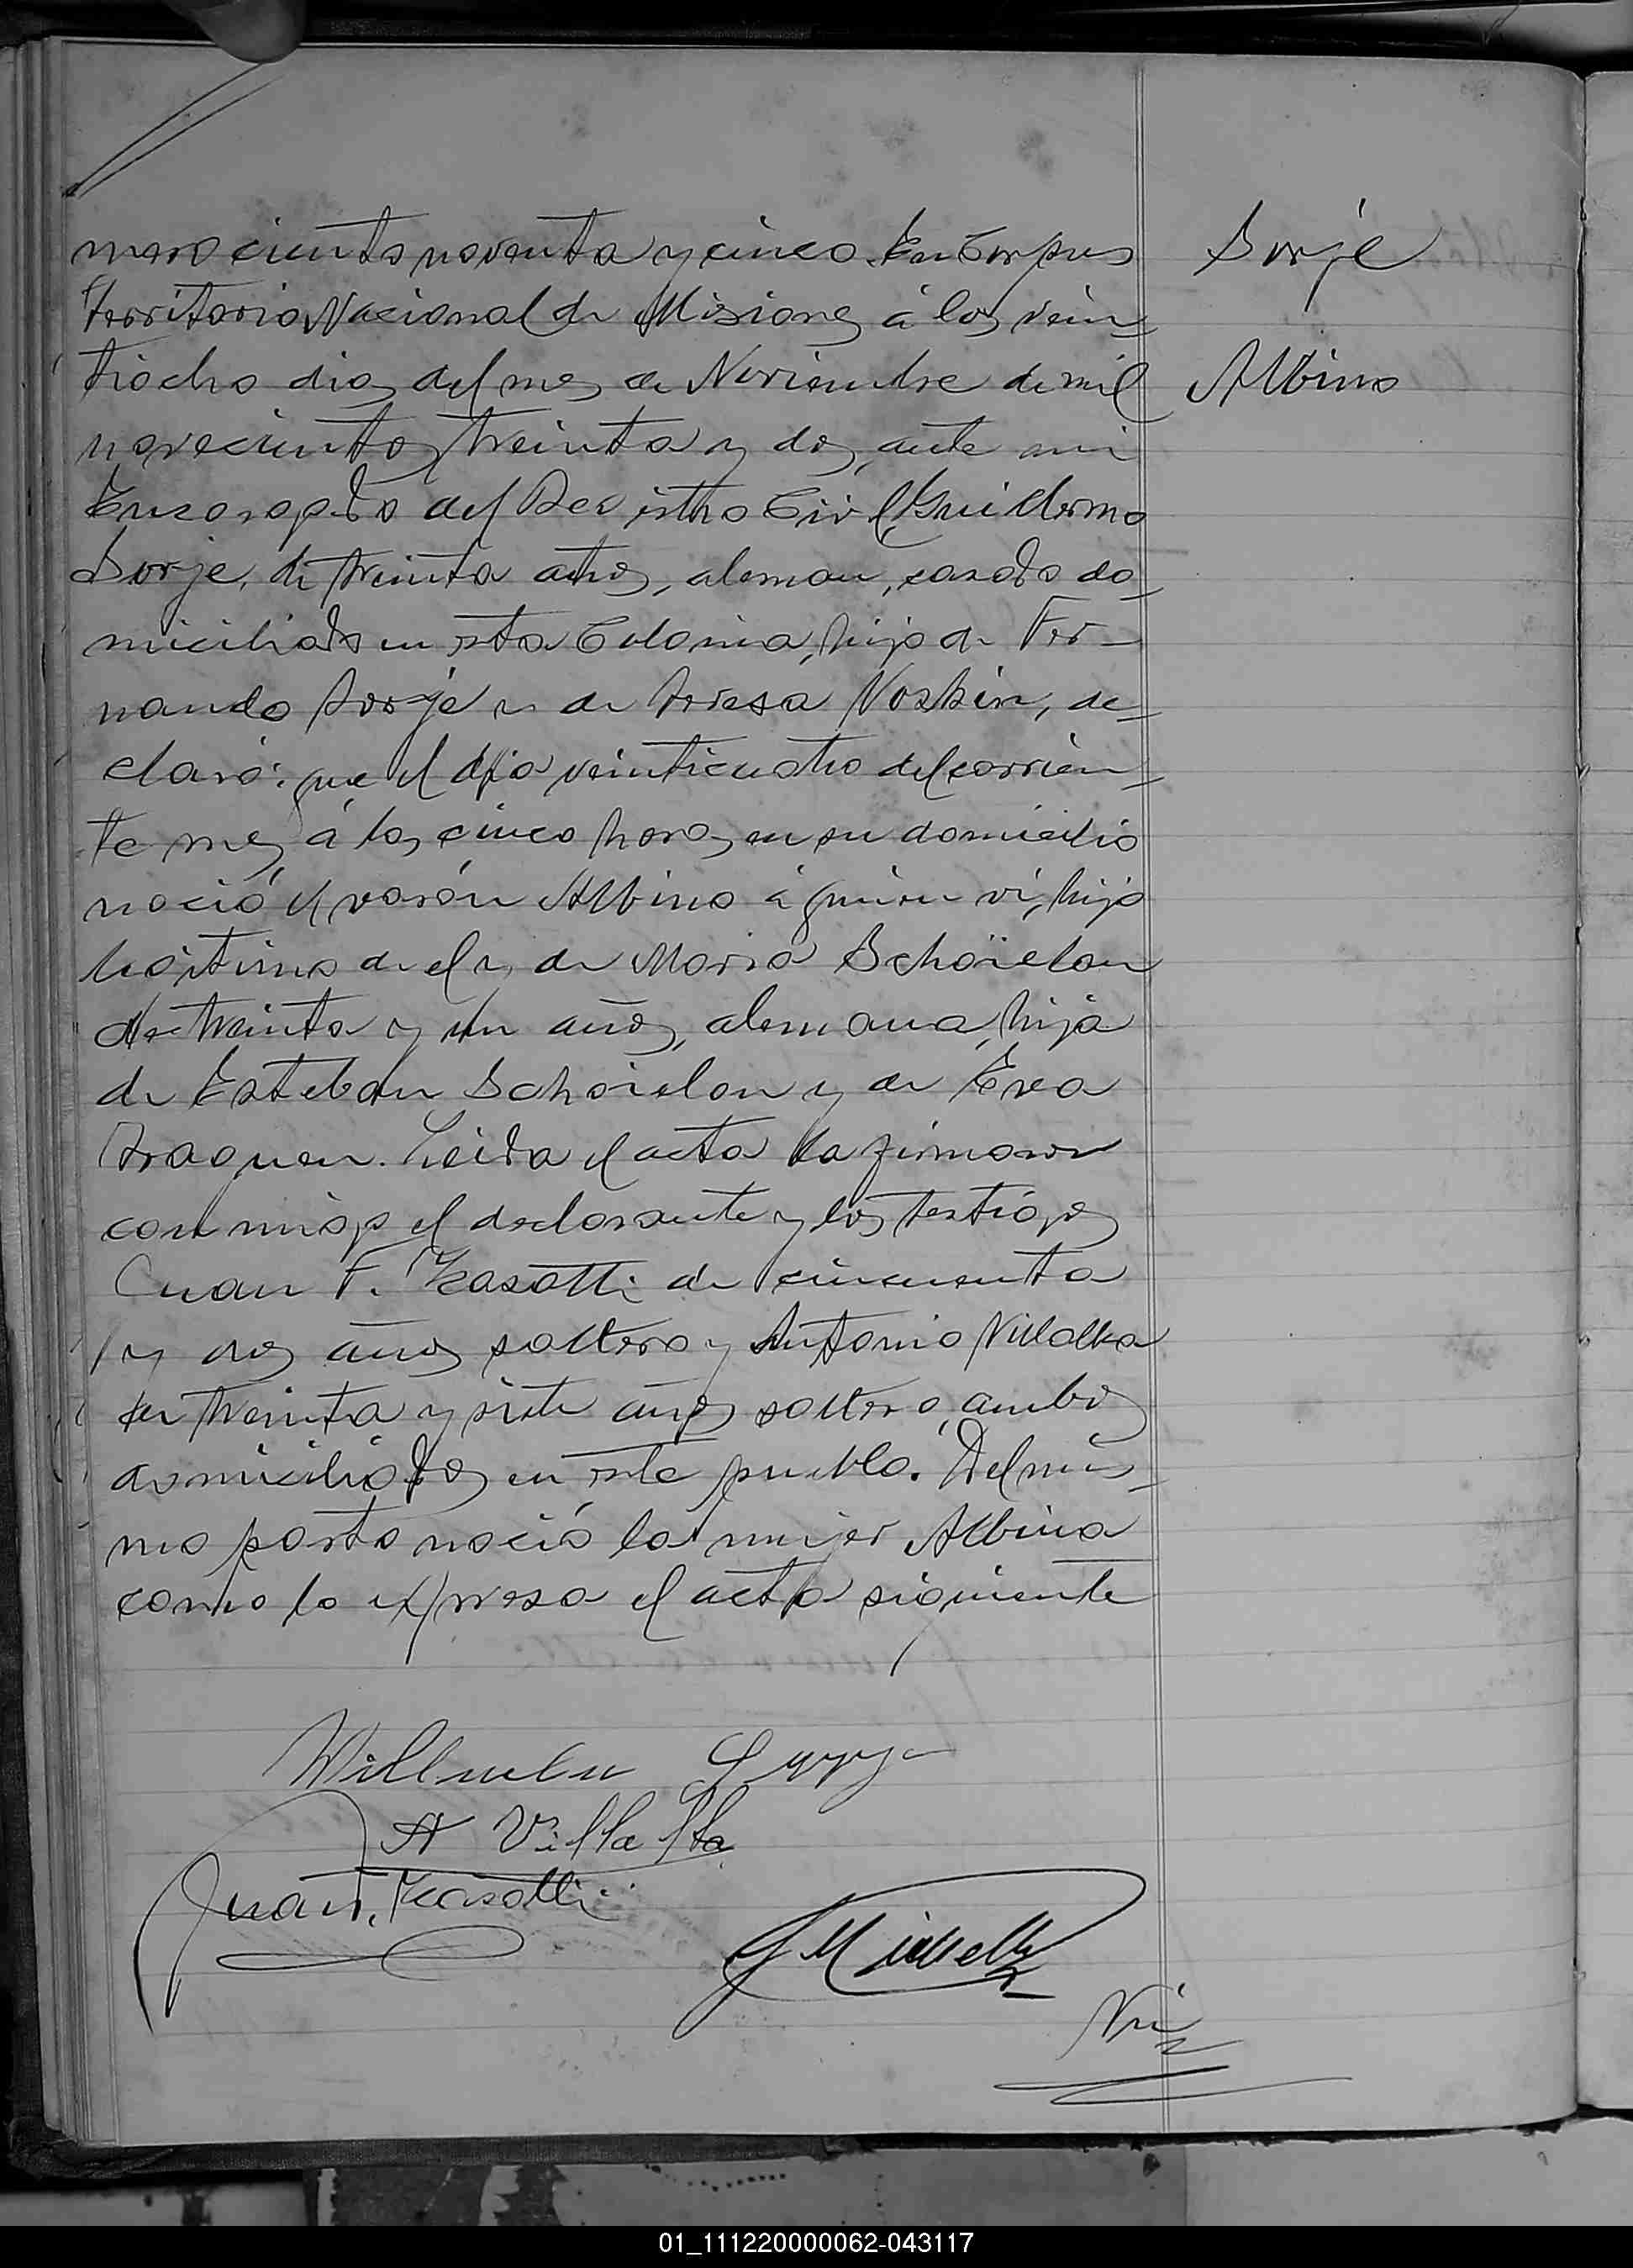 mero ciento noventa y cinco. En Corpus
Territorio Nacional de Misiones á los vein
tiocho dias del mes de Noviembre de mil
novecientos treinta y dos, ante mi
Encargado del Registro Civil, Guillermo
Sorje, de treinta años, aleman, casado do
miciliado en esta Colonia, hijo de Fer
nando Sorje y de Teresa Voskin, de
claró: que el dia veinticuatro del corrien
te mes á las cinco horas en su domicilio
nació el varón Albino á quien vi, hijo
legitimo de el y de Maria Schöielan
de treinta y un años, alemana, hija
de Esteban Schöielan y de Eva
Leida el acta la firmaron
conmigo el declarante y los testigos
Juan F. Kasotti de cincuenta
y dos años soltero y Antonio Villalba
de treinta y siete años soltero, ambos
domiciliados en este pueblo. Del mis
mo parto nació la mujer Albina
como lo expresa el acta siguiente
Sorje
Albino
Willhelm Sorge
A Villalba
Juan F. Kasotti
Nú
01_111220000062-043117